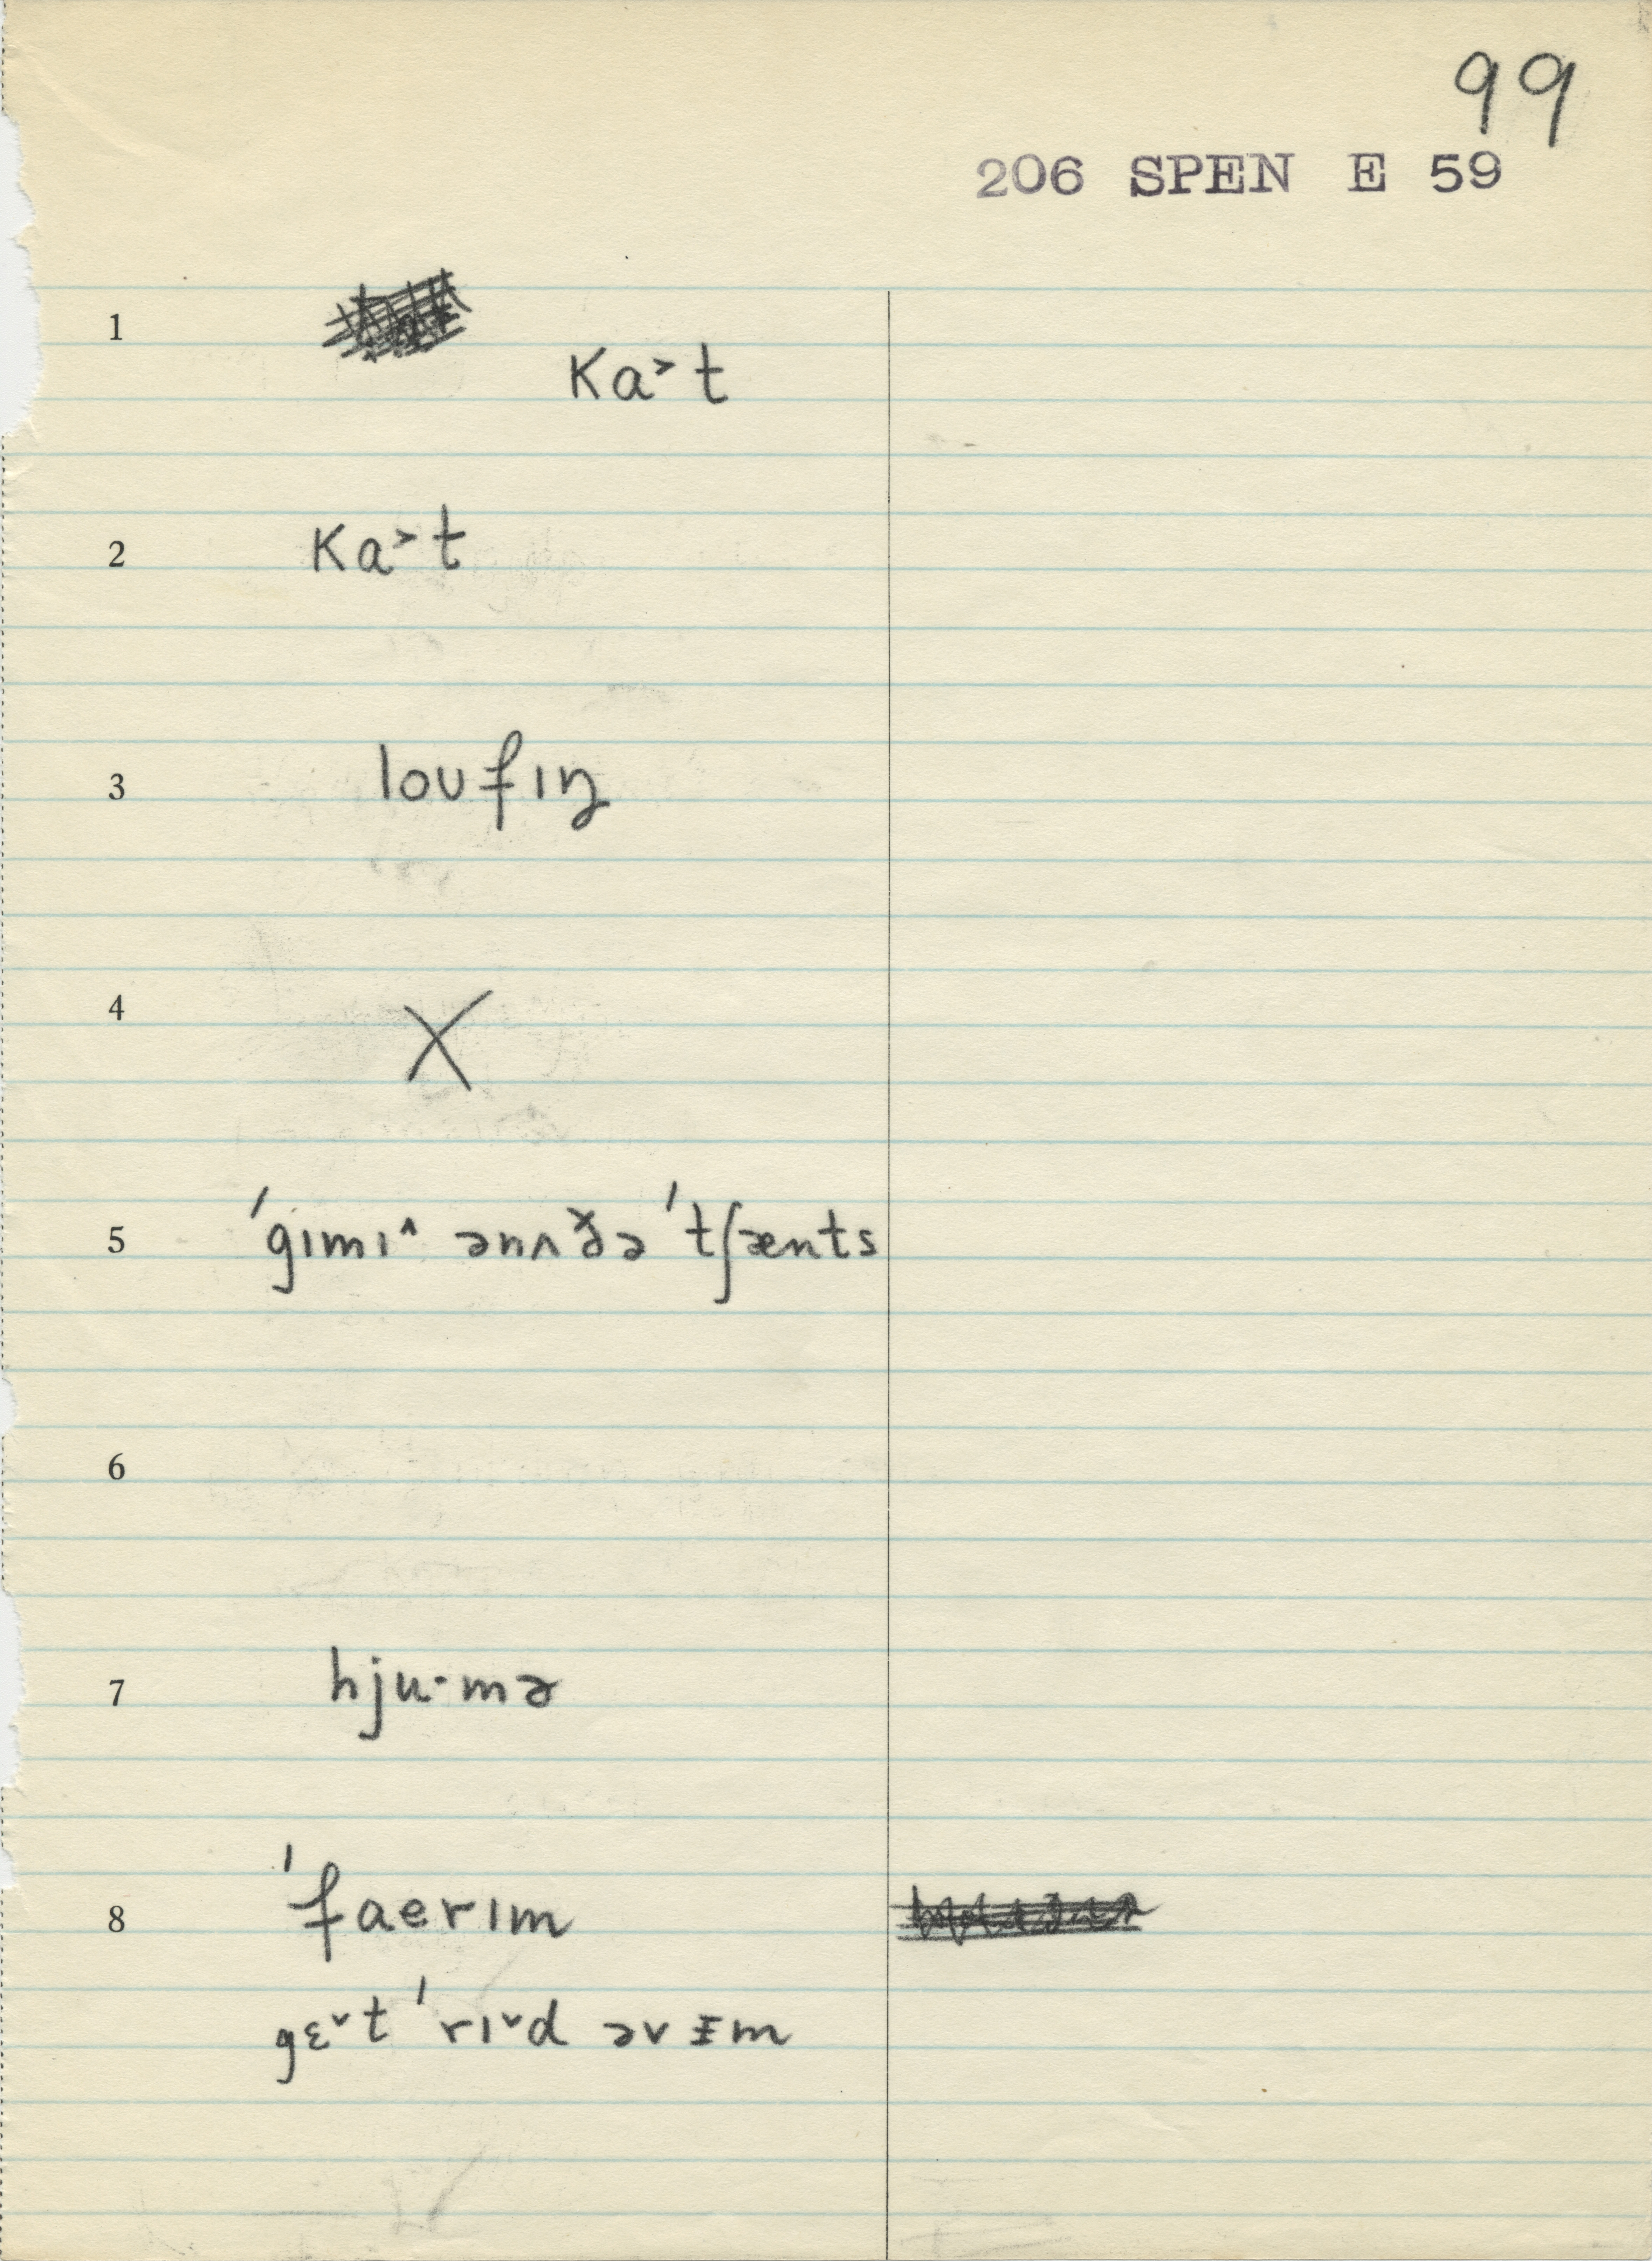 99
206 SPEN E 59
1
Ka˃t
2 Ka˃t
3 loʊfɪŋ
4 X
5 ˈgɪmɪ˄ ənʌðə ˈtʃænts
6
7 hju·mɚ
8 ˈfaerɪm
gɛ˅t ˈrɪ˅d əvᵻm